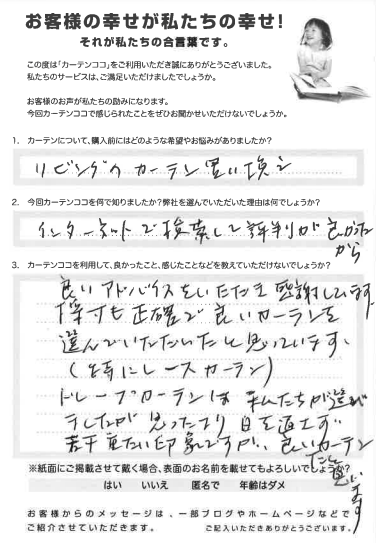 お客様の幸せが私たちの幸せ!
それが私たちの合言葉です。
この度は「カーテンココ」をご利用いただき誠にありがとうございました。
私たちのサービスは、ご満足いただけましたでしょうか。
お客様のお声が私たちの励みになります。
今回カーテンココで感じられたことをぜひお聞かせいただけないでしょうか。
1. カーテンについて、購入前にはどのような希望やお悩みがありましたか?
リビングのカーテン買い換え
2. 今回カーテンココを何で知りましたか?弊社を選んでいただいた理由は何でしょうか?
インターネットで検索して評判が良かった
から
3. カーテンココを利用して、良かったこと、感じたことなどを教えていただけないでしょうか?
良いアドバイスをいただき感謝しています
採寸も正確で良いカーテンを
選んでいただいたと思っています、
(特にレースカーテン)
ドレープカーテンは私たちが選び
ましたが
若干重たい印象ですが、良いカーテン
だと思います
※紙面にご掲載させて戴く場合、表面のお名前を載せてもよろしいでしょうか?
はい いいえ 匿名で 年齢はダメ
お客様からのメッセージは、一部ブログやホームページなどで
ご紹介させていただきます。 ご記入いただきありがとうございます。